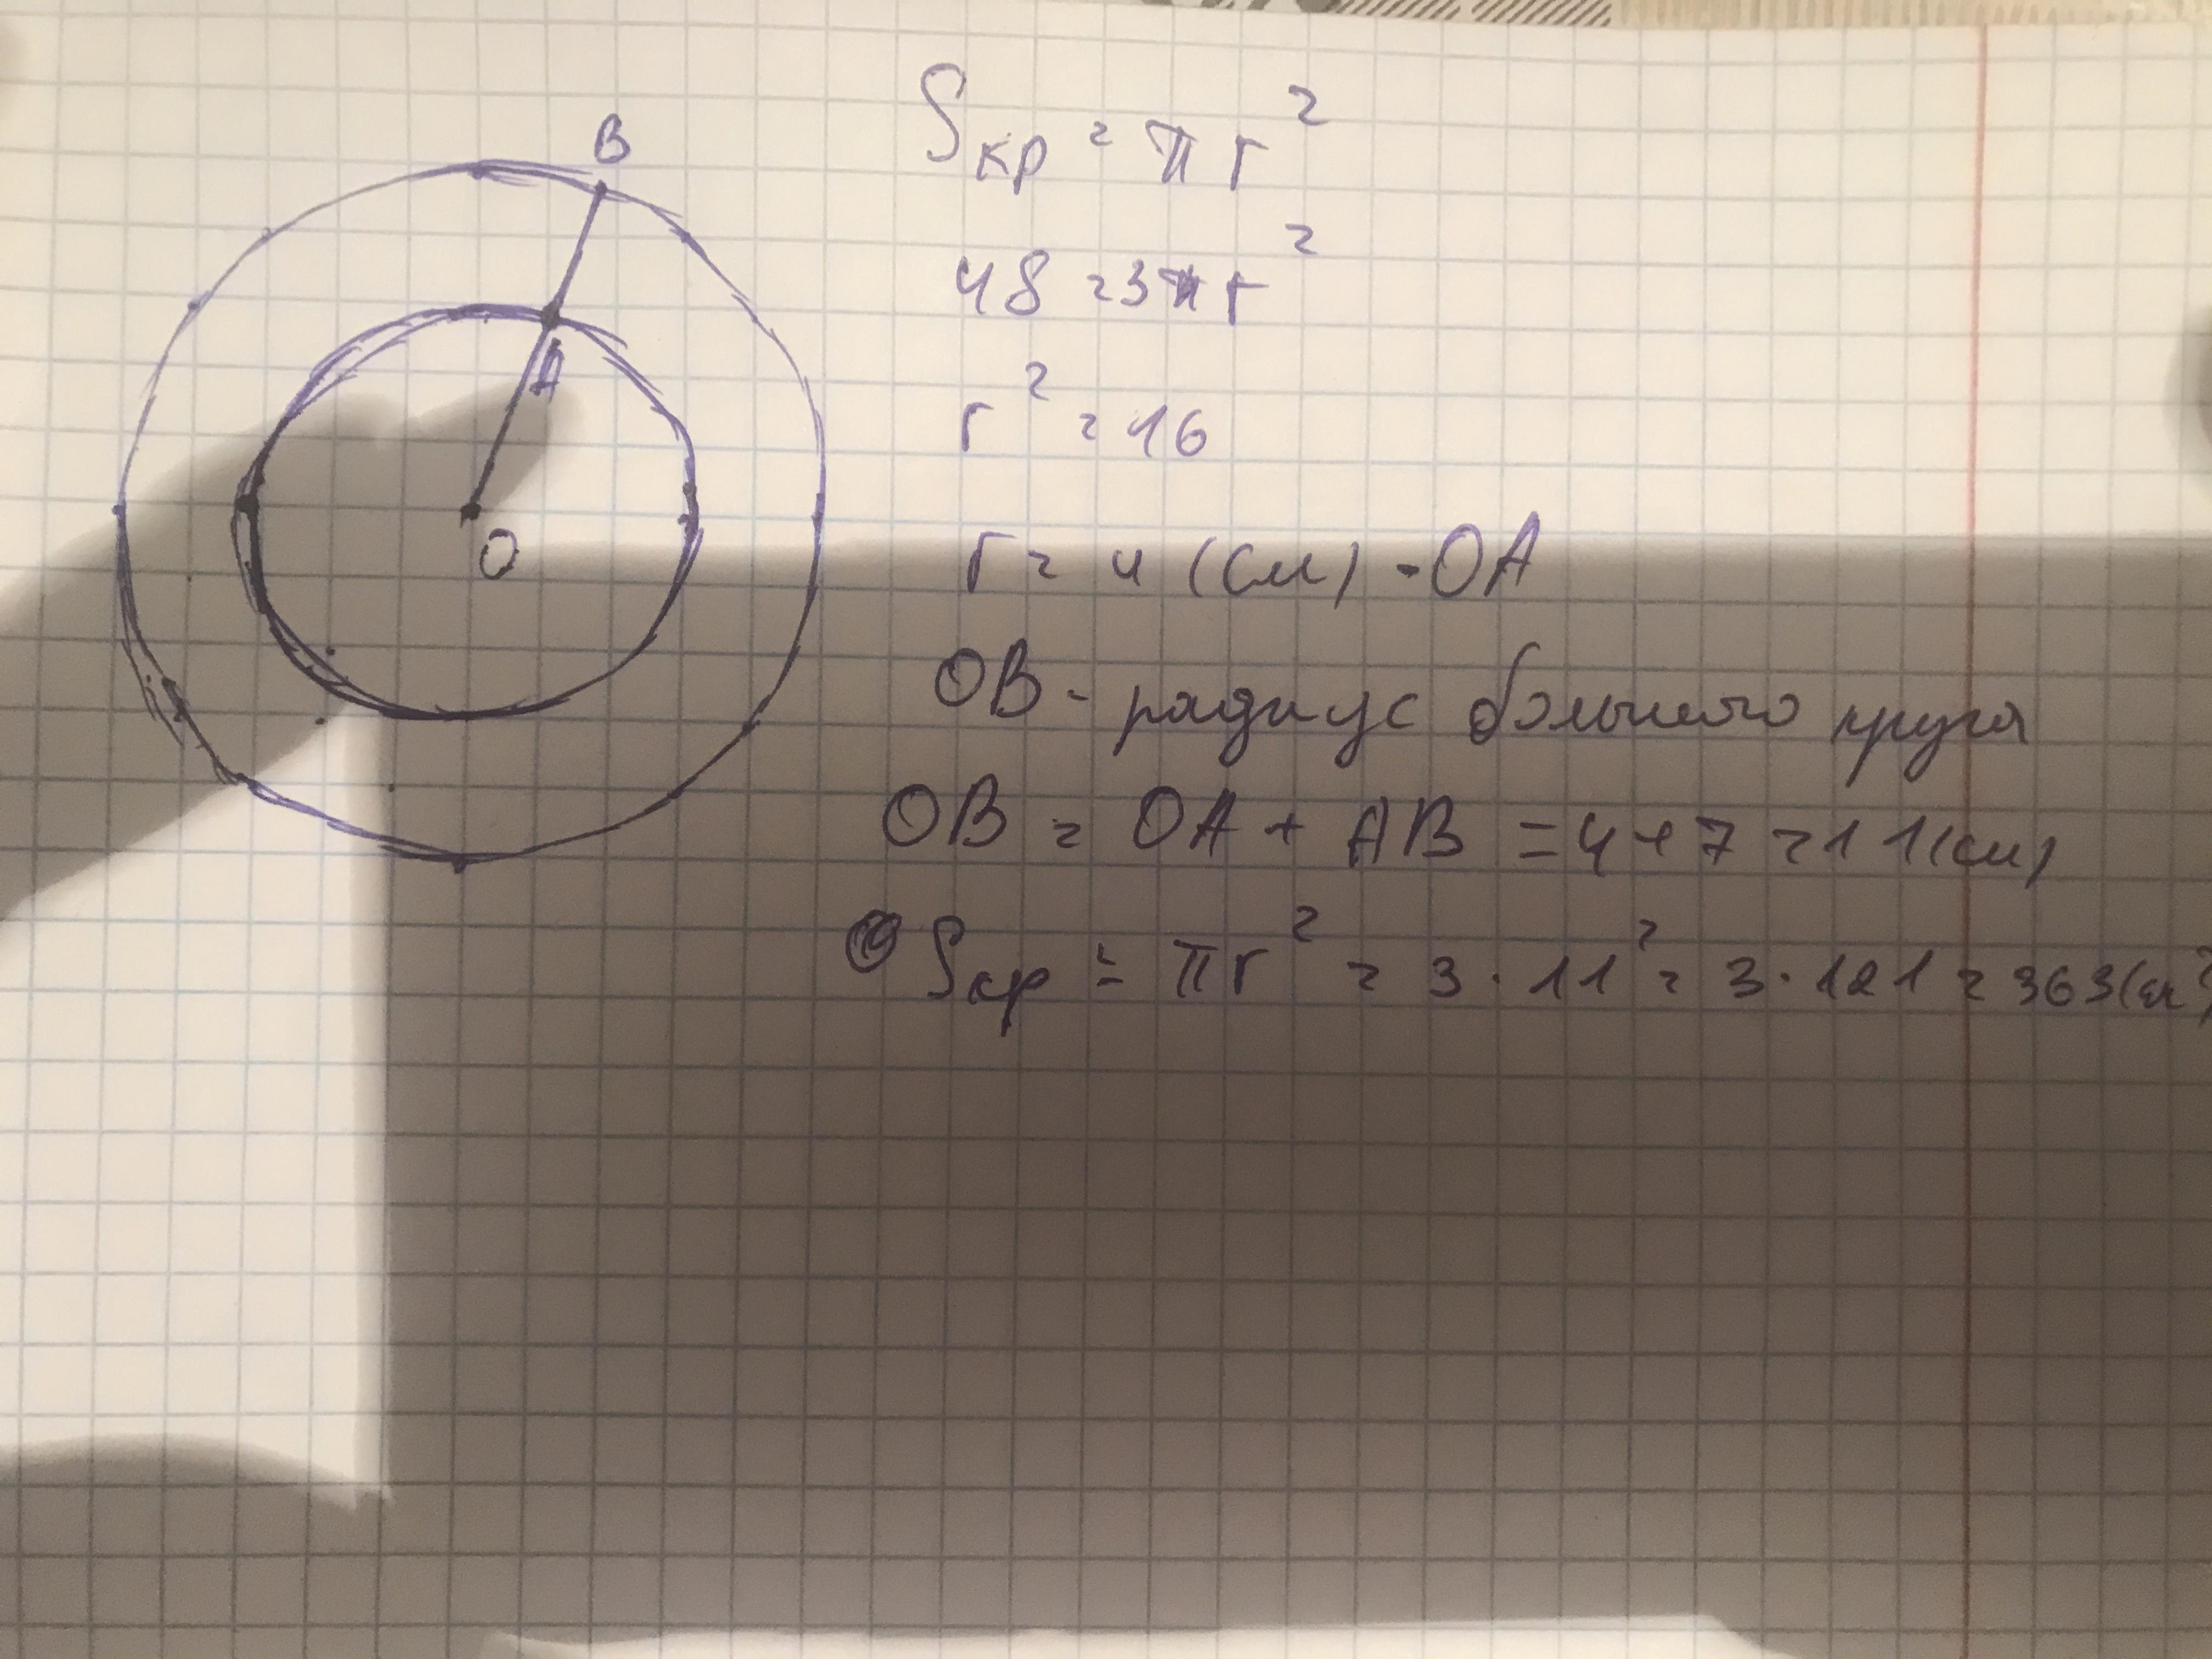 B
A
O
Sкр = πr²
48 = 3r²
r² = 16
r = 4 (см) - OA
OB - радиус большого круга
OB = OA + AB = 4 + 7 = 11 (см)
Sкр = πr² = 3 · 11² = 3 · 121 = 363 (см²)